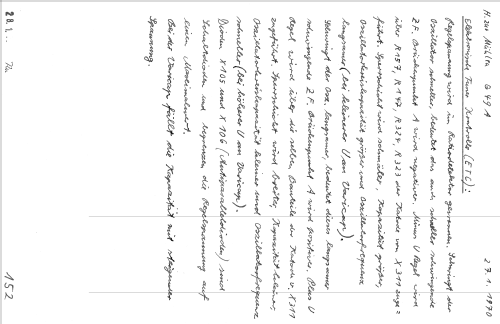 H. zur Mühlen Q 49 A 27.1.1970
Elektronische Tuner Kontrolle (ETC):
Regelspannung wird im Ratiodetektor gewonnen. Schwingt der
Oszillator schneller, bedeutet das auch schneller schwingende
Z.F. Brückenpunkt A wird negativer. Minus U Regel wird
über R157, R147, R324, R323 der Katode von X311 zuge=
führt. Sperrschicht wird schmäler, Kapazität größer,
Oszillatorkreiskapazität größer und Oszillatorfrequenz
langsamer (bei kleinerer U am Varicap).
Schwingt der Osz. langsamer, bedeutet dieses langsamer
schwingende Z.F. Brückenpunkt A wird positiver. Plus U
Regel wird über die selben Bauteile der Katode v. X311
zugeführt. Sperrschicht wird breiter, Kapazität kleiner,
Oszillatorkreiskapazität kleiner und Oszillatorfrequenz
schneller (bei höherer U am Varicap).
Dioden X105 und X106 (Antiparalleldioden) sind
Schaltdioden und begrenzen die Regelspannung auf
einen Maximalwert.
Bei der Varicap fällt die Kapazität mit steigender
Spannung.
152